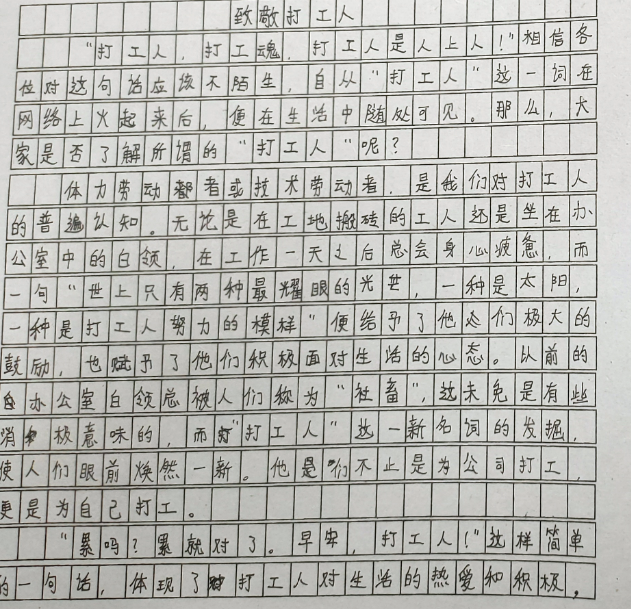 致敬打工人
"打工人,打工魂,打工人是人上人!"相信各
位对这句话应该不陌生,自从"打工人"这一词在
网络上火起来后,便在生活中随处可见。那么,大
家是否了解所谓的"打工人"呢?
体力劳动者或技术劳动者,是我们对打工人
的普遍认知。无论是在工地搬砖的工人还是坐在办
公室中的白领,在工作一天之后总会身心疲惫,而
一句"世上只有两种最耀眼的光芒,一种是太阳,
一种是打工人努力的模样"便给予了他们极大的
鼓励,也赋予了他们积极面对生活的心态。以前的
办公室白领总被人们称为"社畜",这未免是有些
消极意味的,而"打工人"这一新名词的发掘,
使人们眼前焕然一新。他们不止是为公司打工,
更是为自己打工。
"累吗?累就对了。早安,打工人!"这样简单
的一句话,体现了打工人对生活的热爱和积极,